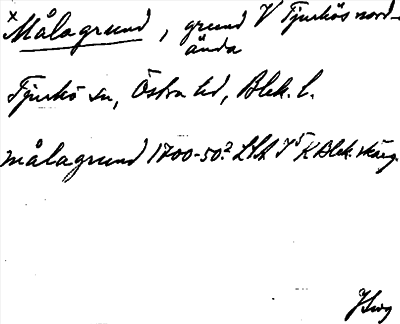 x Målagrund, grund V Tjurkös nord-
ända
Tjurkö sn, Östra hd, Blek. l.
målagrund 1700-50? LSA K Blek. skärg.